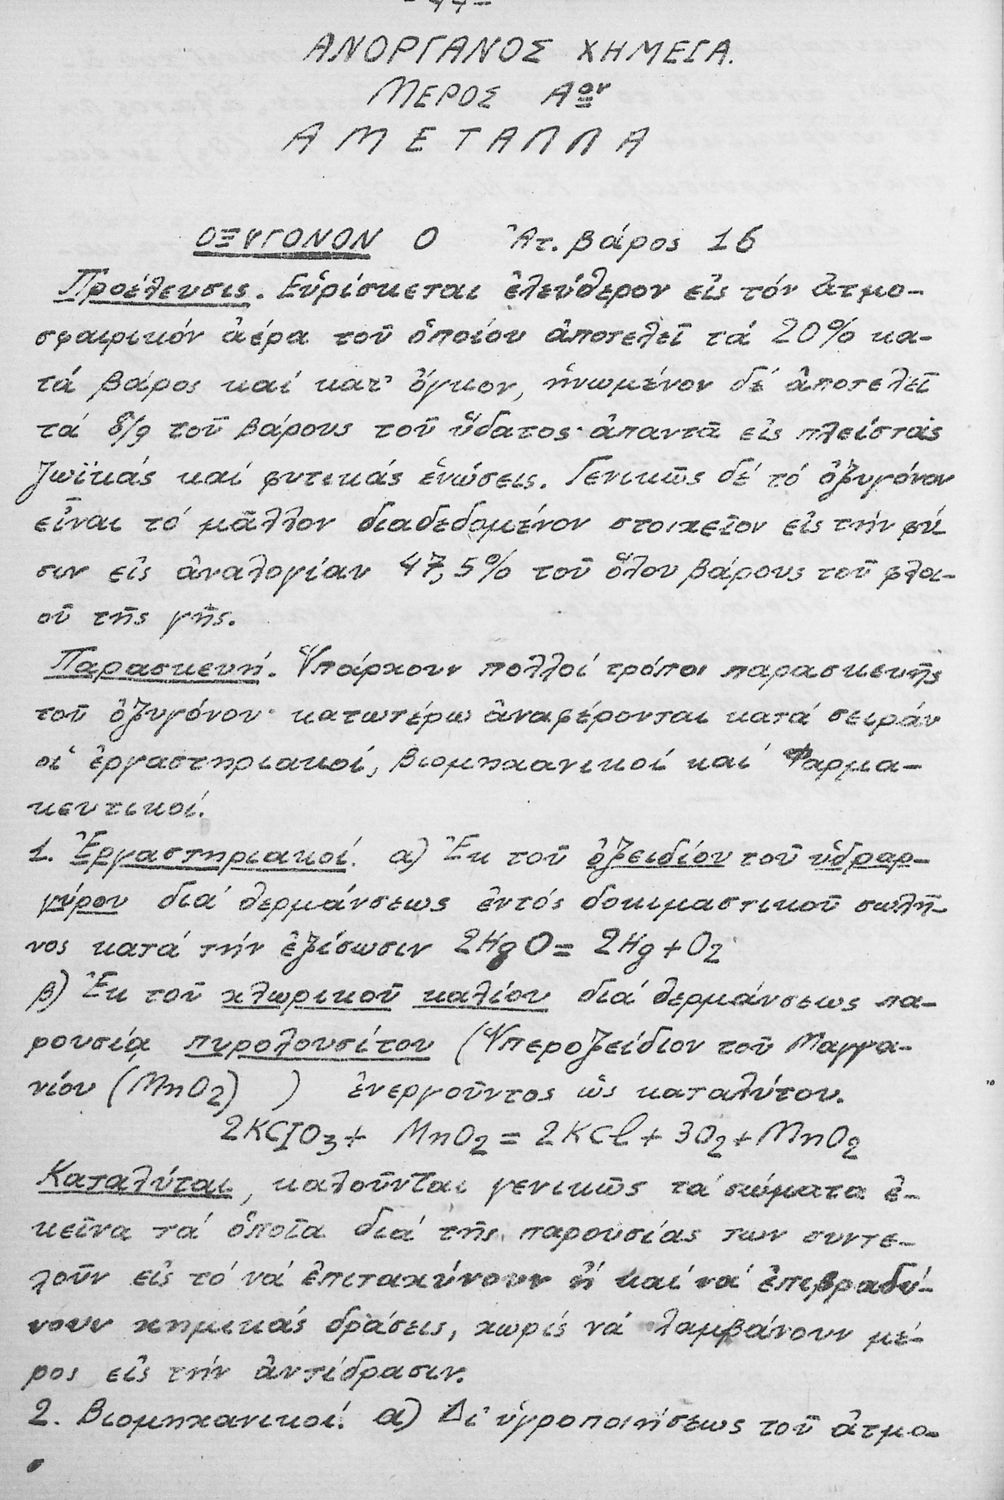 ΑΝΟΡΓΑΝΟΣ ΧΗΜΕΙΑ.
ΜΕΡΟΣ Αον
ΑΜΕΤΑΛΛΑ
ΟΞΥΓΟΝΟΝ Ο Ἀτ. βάρος 16
Προέλευσις. Εὑρίσκεται ἐλεύθερον εἰς τόν ἀτμο-
σφαιρικόν ἀέρα τοῦ ὁποίου ἀποτελεῖ τά 20% κα-
τά βάρος καί κατ' ὄγκον, ἡνωμένον δέ ἀποτελεῖ
τά 8/9 τοῦ βάρους τοῦ ὕδατος· ἀπαντᾶ εἰς πλείστας
ζωϊκάς καί φυτικάς ἑνώσεις. Γενικῶς δέ τό ὀξυγόνον
εἶναι τό μᾶλλον διαδεδομένον στοιχεῖον εἰς τήν φύ
σιν εἰς ἀναλογίαν 47,5% τοῦ ὅλου βάρους τοῦ φλοι-
οῦ τῆς γῆς.
Παρασκευή. Ὑπάρχουν πολλοί τρόποι παρασκευῆς
τοῦ ὀξυγόνου· κατωτέρω ἀναφέρονται κατά σειράν
οἱ ἐργαστηριακοί, βιομηχανικοί καί Φαρμα-
κευτικοί.
1. Ἐργαστηριακοί. α) Ἐκ τοῦ ὀξειδίου τοῦ ὑδραρ-
γύρου διά θερμάνσεως ἐντός δοκιμαστικοῦ σωλῆ-
νος κατά τήν ἐξίσωσιν 2HgO = 2Hg + O2
β) Ἐκ τοῦ χλωρικοῦ καλίου διά θερμάνσεως πα-
ρουσίᾳ πυρολουσίτου (Ὑπεροξείδιον τοῦ Μαγγα-
νίου (MnO2) ) ἐνεργοῦντος ὡς καταλύτου.
2KClO3 + MnO2 = 2KCl + 3O2 + MnO2
Καταλύται, καλοῦνται γενικῶς τά σώματα ἐ-
κεῖνα τά ὁποῖα διά τῆς παρουσίας των συντε-
λοῦν εἰς τό νά ἐπιταχύνουν ἤ καί νά ἐπιβραδύ-
νουν χημικάς δράσεις, χωρίς νά λαμβάνουν μέ-
ρος εἰς τήν ἀντίδρασιν.
2. Βιομηχανικοί. α) Δι' ὑγροποιήσεως τοῦ ἀτμο-